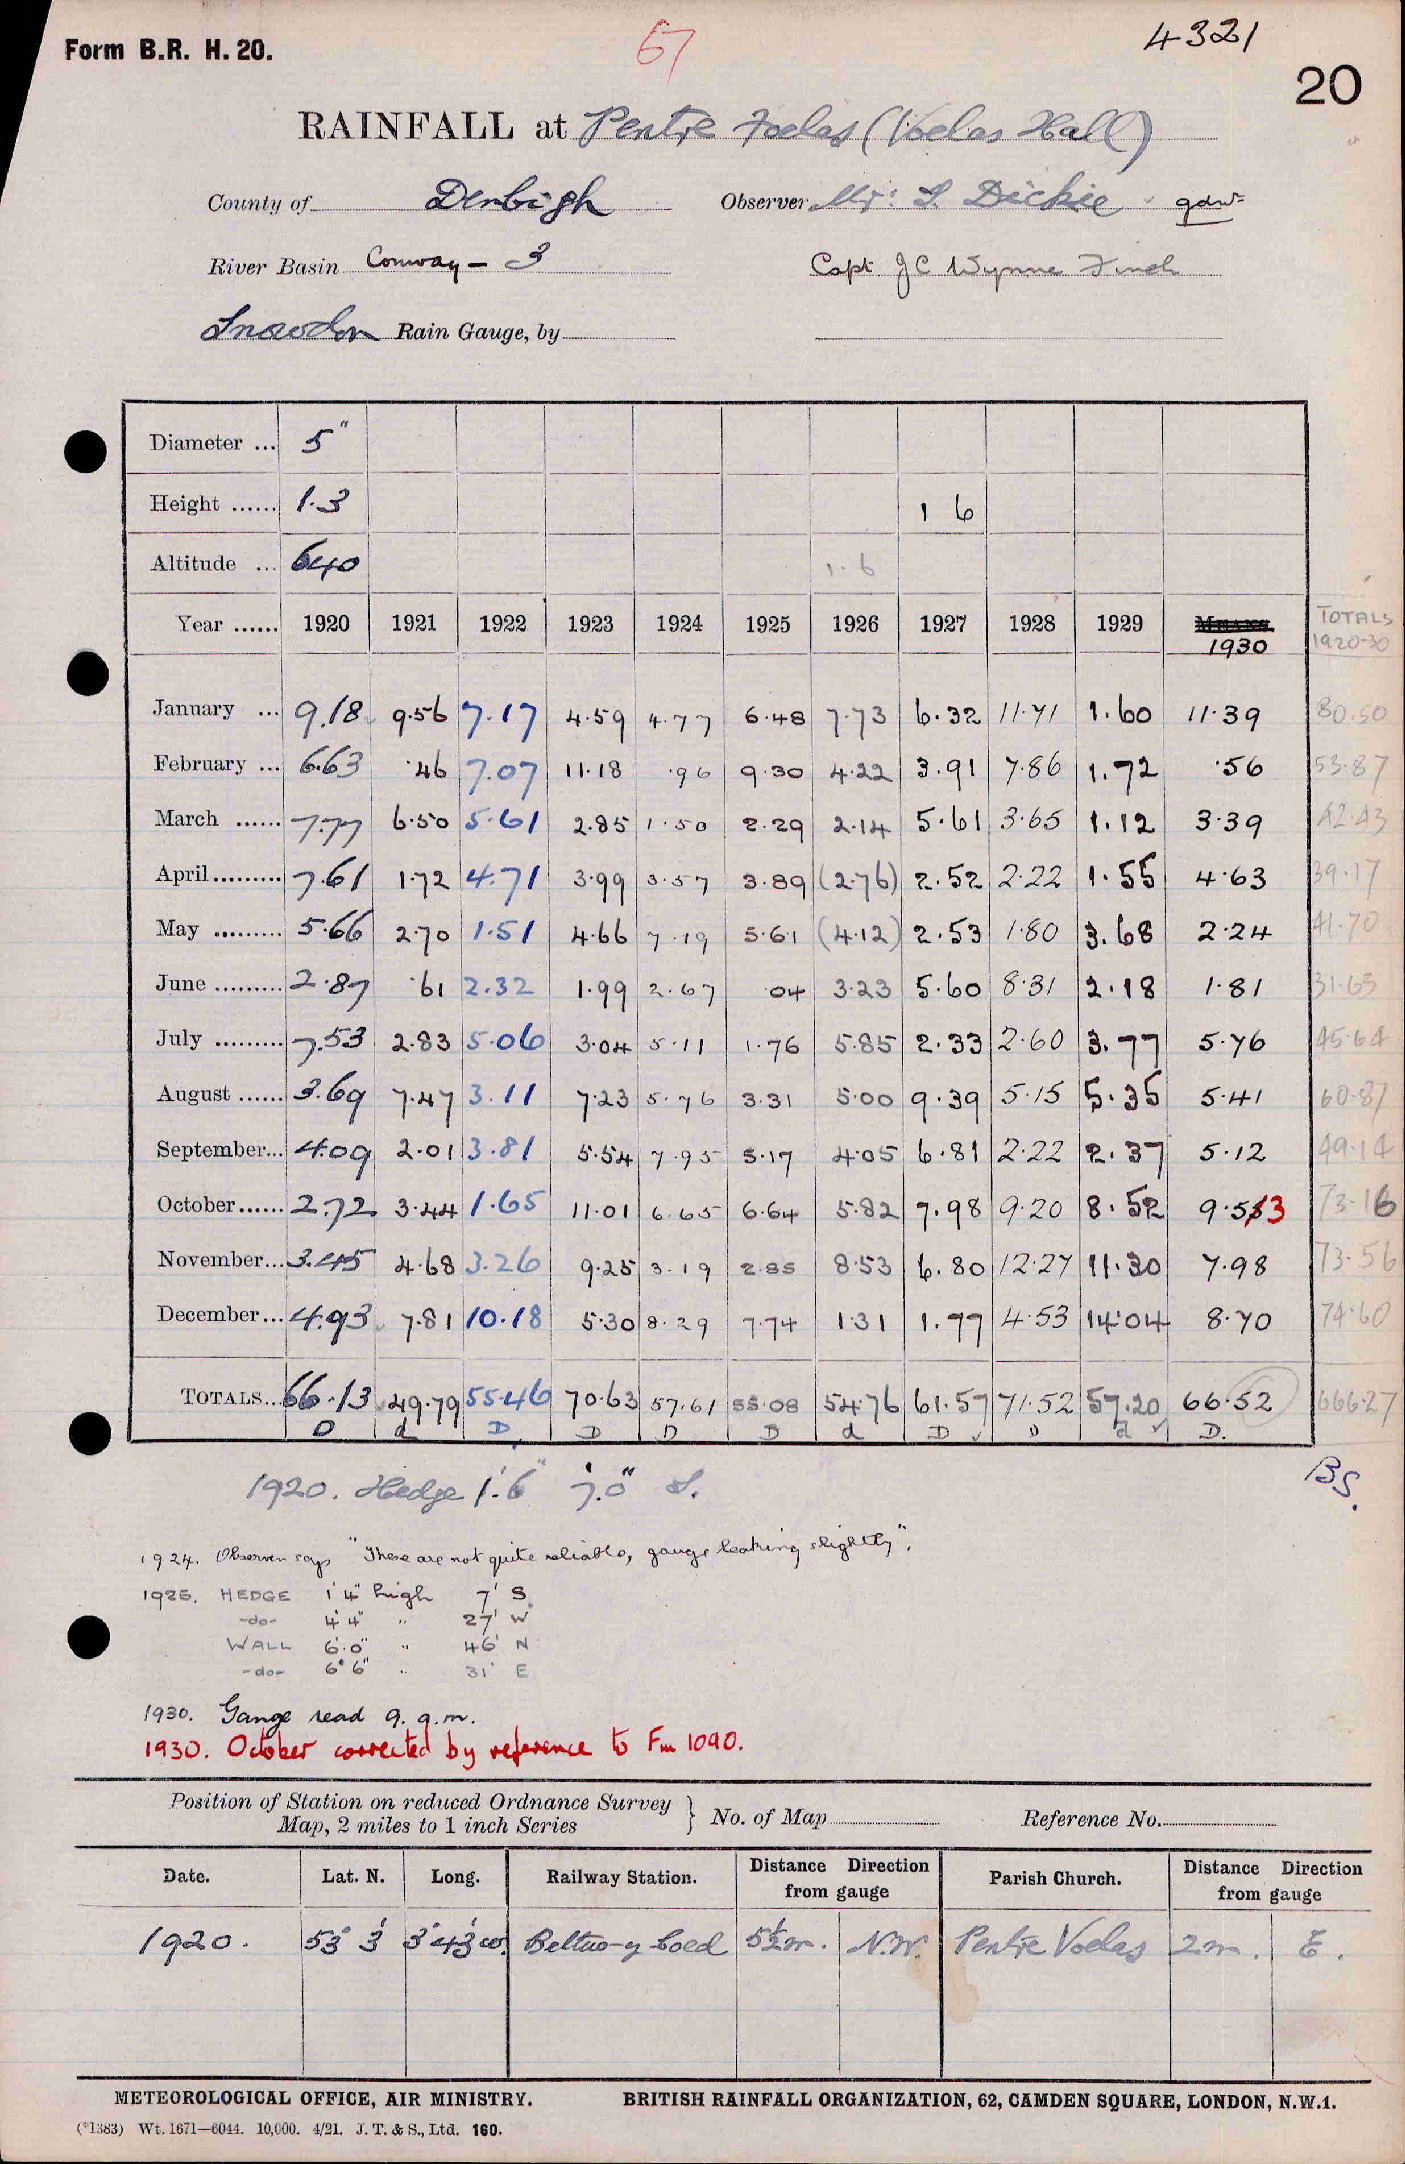 Form B.R. H. 20.
67
4321
20
RAINFALL at Pentre Foelas (Voelas Hall)
County of Denbigh Observer Mr: L Dickie gdnr
River Basin Conway - 3 Capt JC Wynne Finch
Snowdon Rain Gauge, by
Diameter ... 5"
Height ...... 1.3 1 6
Altitude ... 640 1.6
Year ...... 1920 1921 1922 1923 1924 1925 1926 1927 1928 1929 MEANS. 1930 TOTALS 1920-30
January ... 9.18 9.56 7.17 4.59 4.77 6.48 7.73 6.32 11.71 1.60 11.39 80.50
February ... 6.63 .46 7.07 11.18 .96 9.30 4.22 3.91 7.86 1.72 .56 53.87
March ...... 7.77 6.50 5.61 2.85 1.50 2.29 2.14 5.61 3.65 1.12 3.39 42.43
April ......... 7.61 1.72 4.71 3.99 3.57 3.89 (2.76) 2.52 2.22 1.55 4.63 39.17
May ......... 5.66 2.70 1.51 4.66 7.19 5.61 (4.12) 2.53 1.80 3.68 2.24 41.70
June ......... 2.87 .61 2.32 1.99 2.67 .04 3.23 5.60 8.31 2.18 1.81 31.63
July ......... 7.53 2.83 5.06 3.04 5.11 1.76 5.85 2.33 2.60 3.77 5.76 45.64
August ...... 3.69 7.47 3.11 7.23 5.76 3.31 5.00 9.39 5.15 5.35 5.41 60.87
September... 4.09 2.01 3.81 5.54 7.95 5.17 4.05 6.81 2.22 2.37 5.12 49.14
October...... 2.72 3.44 1.65 11.01 6.65 6.64 5.82 7.98 9.20 8.52 9.53 73.16
November... 3.45 4.68 3.26 9.25 3.19 2.85 8.53 6.80 12.27 11.30 7.98 73.56
December... 4.93 7.81 10.18 5.30 8.29 7.74 1.31 1.77 4.53 14.04 8.70 74.60
TOTALS... 66.13 49.79 55.46 70.63 57.61 55.08 54.76 61.57 71.52 57.20 66.52 666.27
D d D D D D d D D d D.
BS.
1920. Hedge 1'.6" 7'.0" S.
1924. Observer says "These are not quite reliable, gauge leaking slightly".
1925. HEDGE 1' 4" high 7' S.
-do- 4' 4" " 27' W
WALL 6'.0" " 46' N
-do- 6' 6" " 31' E
1930. Gauge read 9. a.m.
1930. October corrected by reference to Fm 1090.
Position of Station on reduced Ordnance Survey
Map, 2 miles to 1 inch Series } No. of Map Reference No.
Date. Lat. N. Long. Railway Station. Distance Direction from gauge Parish Church. Distance Direction from gauge
1920. 53° 3' 3° 43' W. Bettws-y-Coed 5½m. N.W. Pentre Voelas 2m. E.
METEOROLOGICAL OFFICE, AIR MINISTRY. BRITISH RAINFALL ORGANIZATION, 62, CAMDEN SQUARE, LONDON, N.W.1.
(*1383) Wt. 1671—6044. 10,000. 4/21. J. T. & S., Ltd. 160.